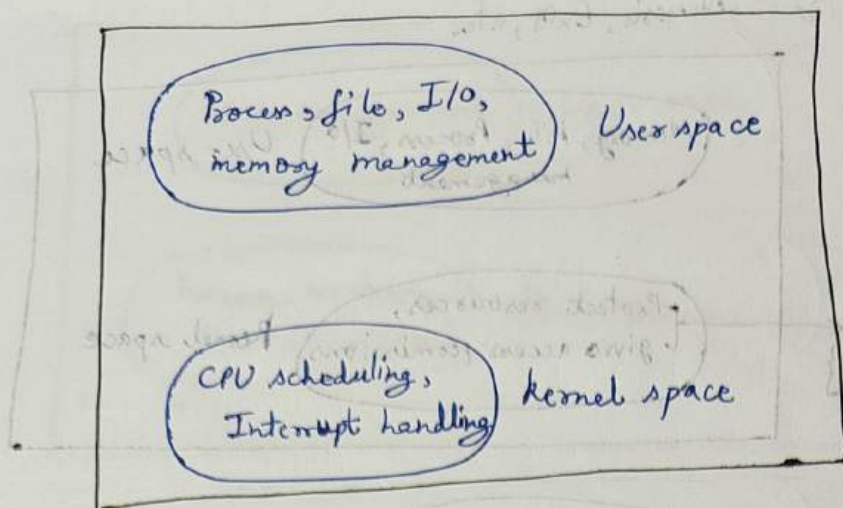 Process, file, I/O,
memory management
User space
CPU scheduling,
Interrupt handling
kernel space